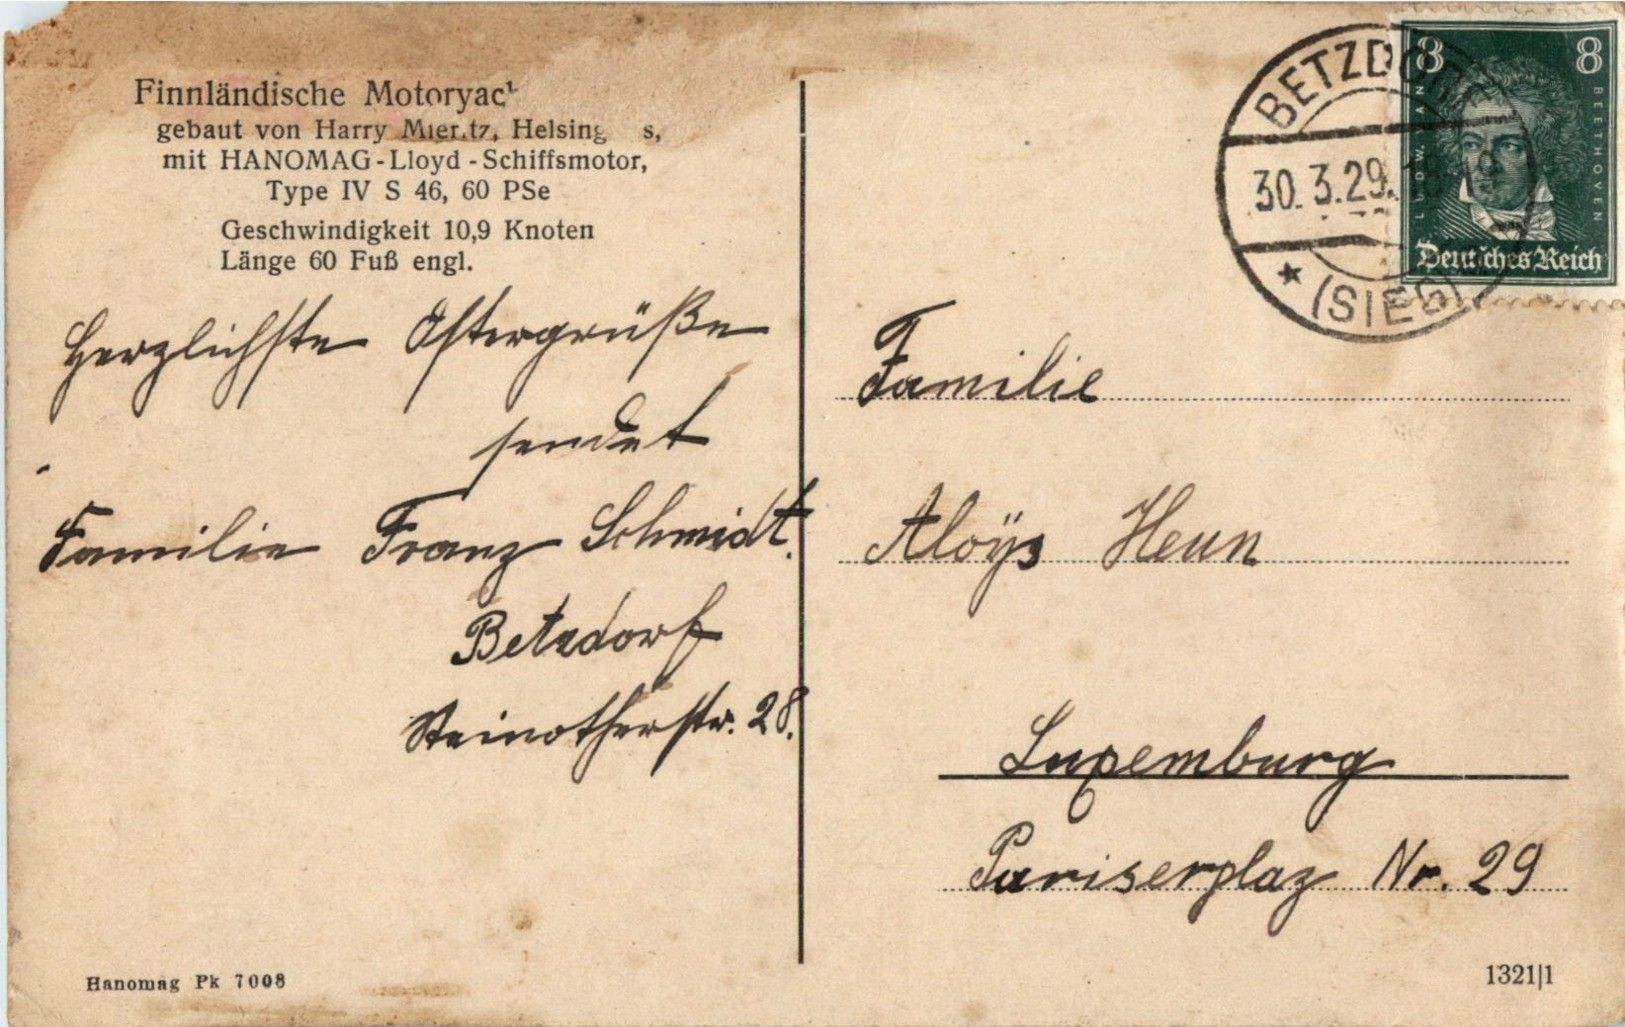 Finnländische Motoryac
gebaut von Harry Helsing s,
mit HANOMAG-Lloyd-Schiffsmotor,
Type IV S 46, 60 PSe
Geschwindigkeit 10,9 Knoten
Länge 60 Fuß engl.
Herzlichste Ostergrüße
sendet
Familie Franz Schmidt.
Betzdorf
Steinotherstr. 28.
Hanomag Pk 7008
BETZDORF
30.3.29.18-19
* (SIEG)
8 8
LUDW. VAN
BEETHOVEN
Deutsches Reich
Familie
Aloÿs Heun
Luxemburg
Pariserplaz Nr. 29
1321|1